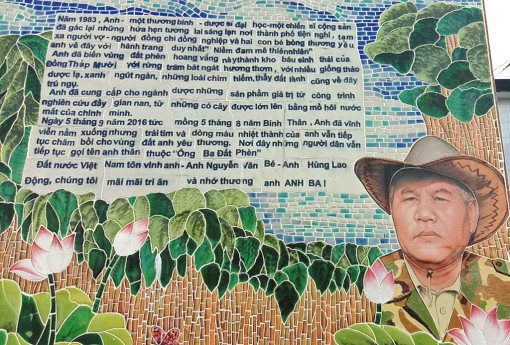 Năm 1983, Anh - một thương binh - dược sĩ đại học-một chiến sĩ cộng sản
đã gác lại những hứa hẹn tương lai sáng lạn nơi thành phố tiện nghi, tạm
xa người vợ - người đồng chí đồng nghiệp và hai con bé bỏng thương yêu
anh về đây với hành trang duy nhất" Niềm đam mê thiên nhiên"
Anh đã biến vùng đất phèn hoang vắng và thành kho báu sinh thái của
Đồng Tháp Mười với rừng tràm bát ngát hương thơm, với nhiều giống thảo
dược lạ, xanh ngút ngàn, những loài chim hiếm, thấy đất lành cũng về đây
trú ngụ.
Anh đã cung cấp cho ngành dược những sản phẩm giá trị từ công trình
nghiên cứu đầy gian nan, từ những cỏ cây được lớn lên bằng mồ hôi nước
mắt của chính mình.
Ngày 5 tháng 9 năm 2016 tức mồng 5 tháng 8 năm Bính Thân, Anh đã vĩnh
viễn nằm xuống nhưng trái tim và dòng máu nhiệt thành của anh vẫn tiếp
tục chăm bồi cho vùng đất anh yêu thương. Nơi đây những người dân vẫn
tiếp tục gọi tên anh thân thuộc "Ông Ba Đất Phèn"
Đất nước Việt Nam tôn vinh anh - Anh Nguyễn Văn Bé - Anh Hùng Lao
Động, chúng tôi mãi mãi tri ân và nhớ thương anh ANH BA !